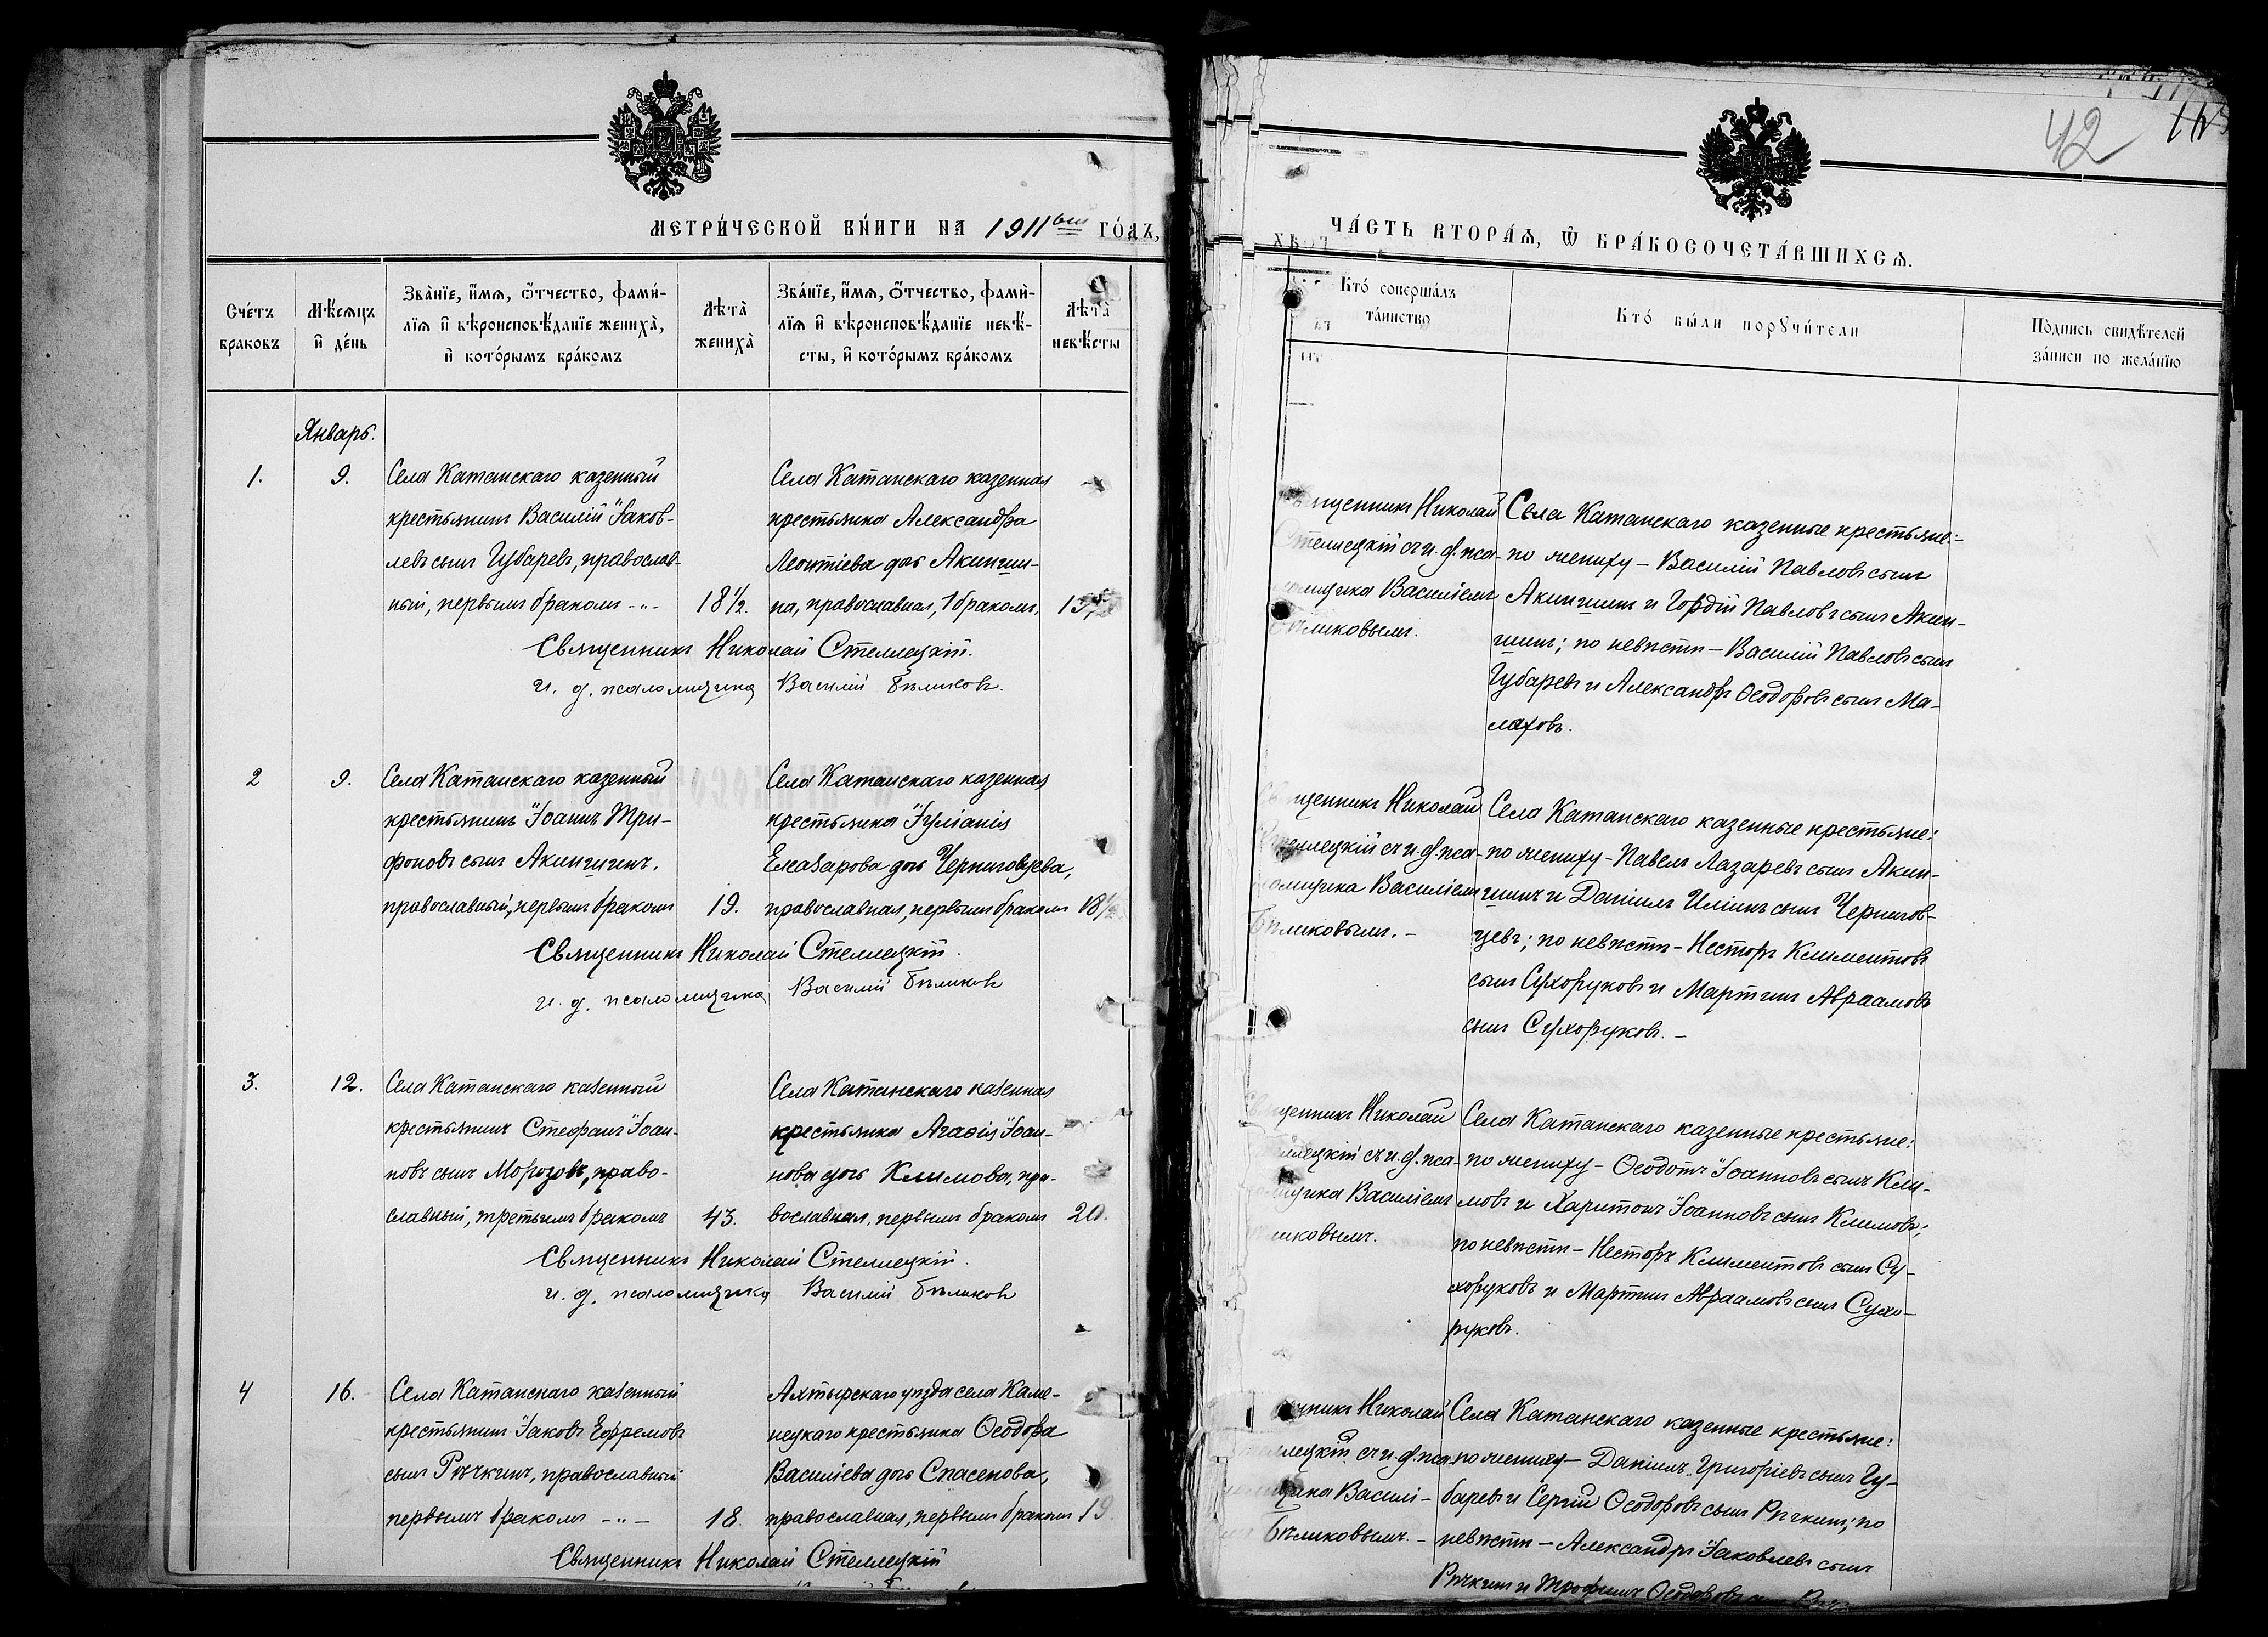 МЕТРИ́ЧЕСКОЙ КНИ́ГИ НА 1911ый ГО́ДЪ,
Сче́тъ браковъ
Мѣ́сѧцъ и҆ де́нь
Зва́нїе, и҆́мѧ, ѻ҆́тчество, фами́-
лїѧ и҆ вѣроисповѣ́данїе жениха̀,
и҆ кото́рымъ бра́комъ
Лѣ́та̀ жениха̀
Зва́нїе, и҆́мѧ, ѻ҆́тчество, фами́-
лїѧ и҆ вѣроисповѣ́данїе невѣ́-
сты, и҆ кото́рымъ бра́комъ
Лѣ́та̀ невѣ́сты
Январь.
1.
9.
Села Катанскаго казенный
крестьянинъ Василій Іаков-
левъ сынъ Губаревъ, православ-
ный, первымъ бракомъ -„-
18½.
Села Катанскаго казенная
крестьянка Александра
Леонтіева дочь Акинши-
на, православная, 1 бракомъ,
Священникъ Николай Стеллецкій.
и. д. псаломщика Василій Бѣликовъ.
2
9.
Села Катанскаго казенный
крестьянинъ Іоаннъ Три-
фоновъ сынъ Акиншинъ,
православный, первымъ бракомъ
19.
Села Катанскаго казенная
крестьянка Іуліанія
Елеазарова дочь Черниговцева,
православная, первымъ бракомъ
18½
Священникъ Николай Стеллецкій.
и. д. псаломщика Василій Бѣликовъ
3.
12.
Села Катанскаго казенный
крестьянинъ Стефанъ Іоан-
новъ сынъ Морозовъ, право-
славный, третьимъ бракомъ
43.
Села Катанскаго казенная
крестьянка Агаѳія Іоан-
нова дочь Климова, пра-
вославная, первымъ бракомъ
20.
Священникъ Николай Стеллецкій.
и. д. псаломщика Василій Бѣликовъ
4
16.
Села Катанскаго казенный
крестьянинъ Іаковъ Ефремовъ
сынъ Рѣчкинъ, православный
первымъ бракомъ -„-
18.
Ахтырскаго уѣзда села Каме-
нецкаго крестьянка Ѳеодора
Василіева дочь Спасенова,
православная, первымъ бракомъ
19.
Священникъ Николай Стеллецкій
42
ЧА́СТЬ ВТОРА́Ѧ, Ѡ҆ БРА́КОСОЧЕТА́ВШИХСѦ.
Кто́ соверша́лъ та́инство
Кто́ бы́ли порꙋчи́тели
По́дпись свидѣ́телей за́писи по жела́нїю
Священникъ Николай
Стеллецкій съ и. д. пса-
ломщика Василіемъ
Бѣликовымъ.
Села Катанскаго казенные крестьяне:-
по жениху – Василій Павловъ сынъ
Акиншинъ и Гордій Павловъ сынъ Акин-
шинъ; по невѣстѣ – Василій Павловъ сынъ
Губаревъ и Александръ Ѳеодоровъ сынъ Ма-
лаховъ.
Священникъ Николай
Стеллецкій съ и. д. пса-
ломщика Василіемъ
Бѣликовымъ. –
Села Катанскаго казенные крестьяне:
по жениху – Павелъ Лазаревъ сынъ Акин-
шинъ и Даніилъ Иліинъ сынъ Чернигов-
цевъ; по невѣстѣ – Несторъ Климентовъ
сынъ Сухоруковъ и Мартинъ Авраамовъ
сынъ Сухоруковъ. –
Священникъ Николай
Стеллецкій съ и. д. пса-
ломщика Василіемъ
Бѣликовымъ.
Села Катанскаго казенные крестьяне:
по жениху – Ѳеодотъ Іоанновъ сынъ Кли-
мовъ и Харитонъ Іоанновъ сынъ Климовъ;
по невѣстѣ – Несторъ Климентовъ сынъ Су-
хоруковъ и Мартинъ Авраамовъ сынъ Сухо-
руковъ.
Священникъ Николай
Стеллецкій съ и. д. пса-
ломщика Василі-
емъ Бѣликовымъ. –
Села Катанскаго казенные крестьяне:
по жениху – Даніилъ Григоріевъ сынъ Гу-
баревъ и Сергій Ѳеодоровъ сынъ Рѣчкинъ; по
невѣстѣ – Александръ Іаковлевъ сынъ
Рѣчкинъ и Трофимъ Ѳеодоровъ сынъ